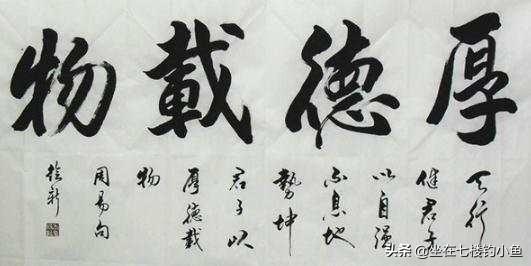 厚德載物
天行
健君子
以自强
不息地
勢坤
君子以
厚德載
物
周易句
头条 @坐在七楼钓小鱼